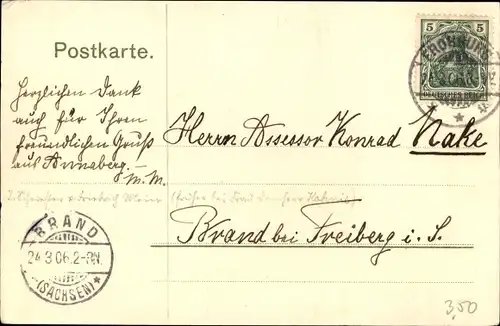 Postkarte.
5
5
FROHBURG
DEUTSCHES REICH
Herzlichen Dank
auch für Ihren
freundlichen Gruß
aus Annaberg. —
M. M.
Herrn Assessor Konrad Nake
Brand bei Freiberg i. S.
BRAND
24.3.06.2-3N.
* (SACHSEN) *
3,50